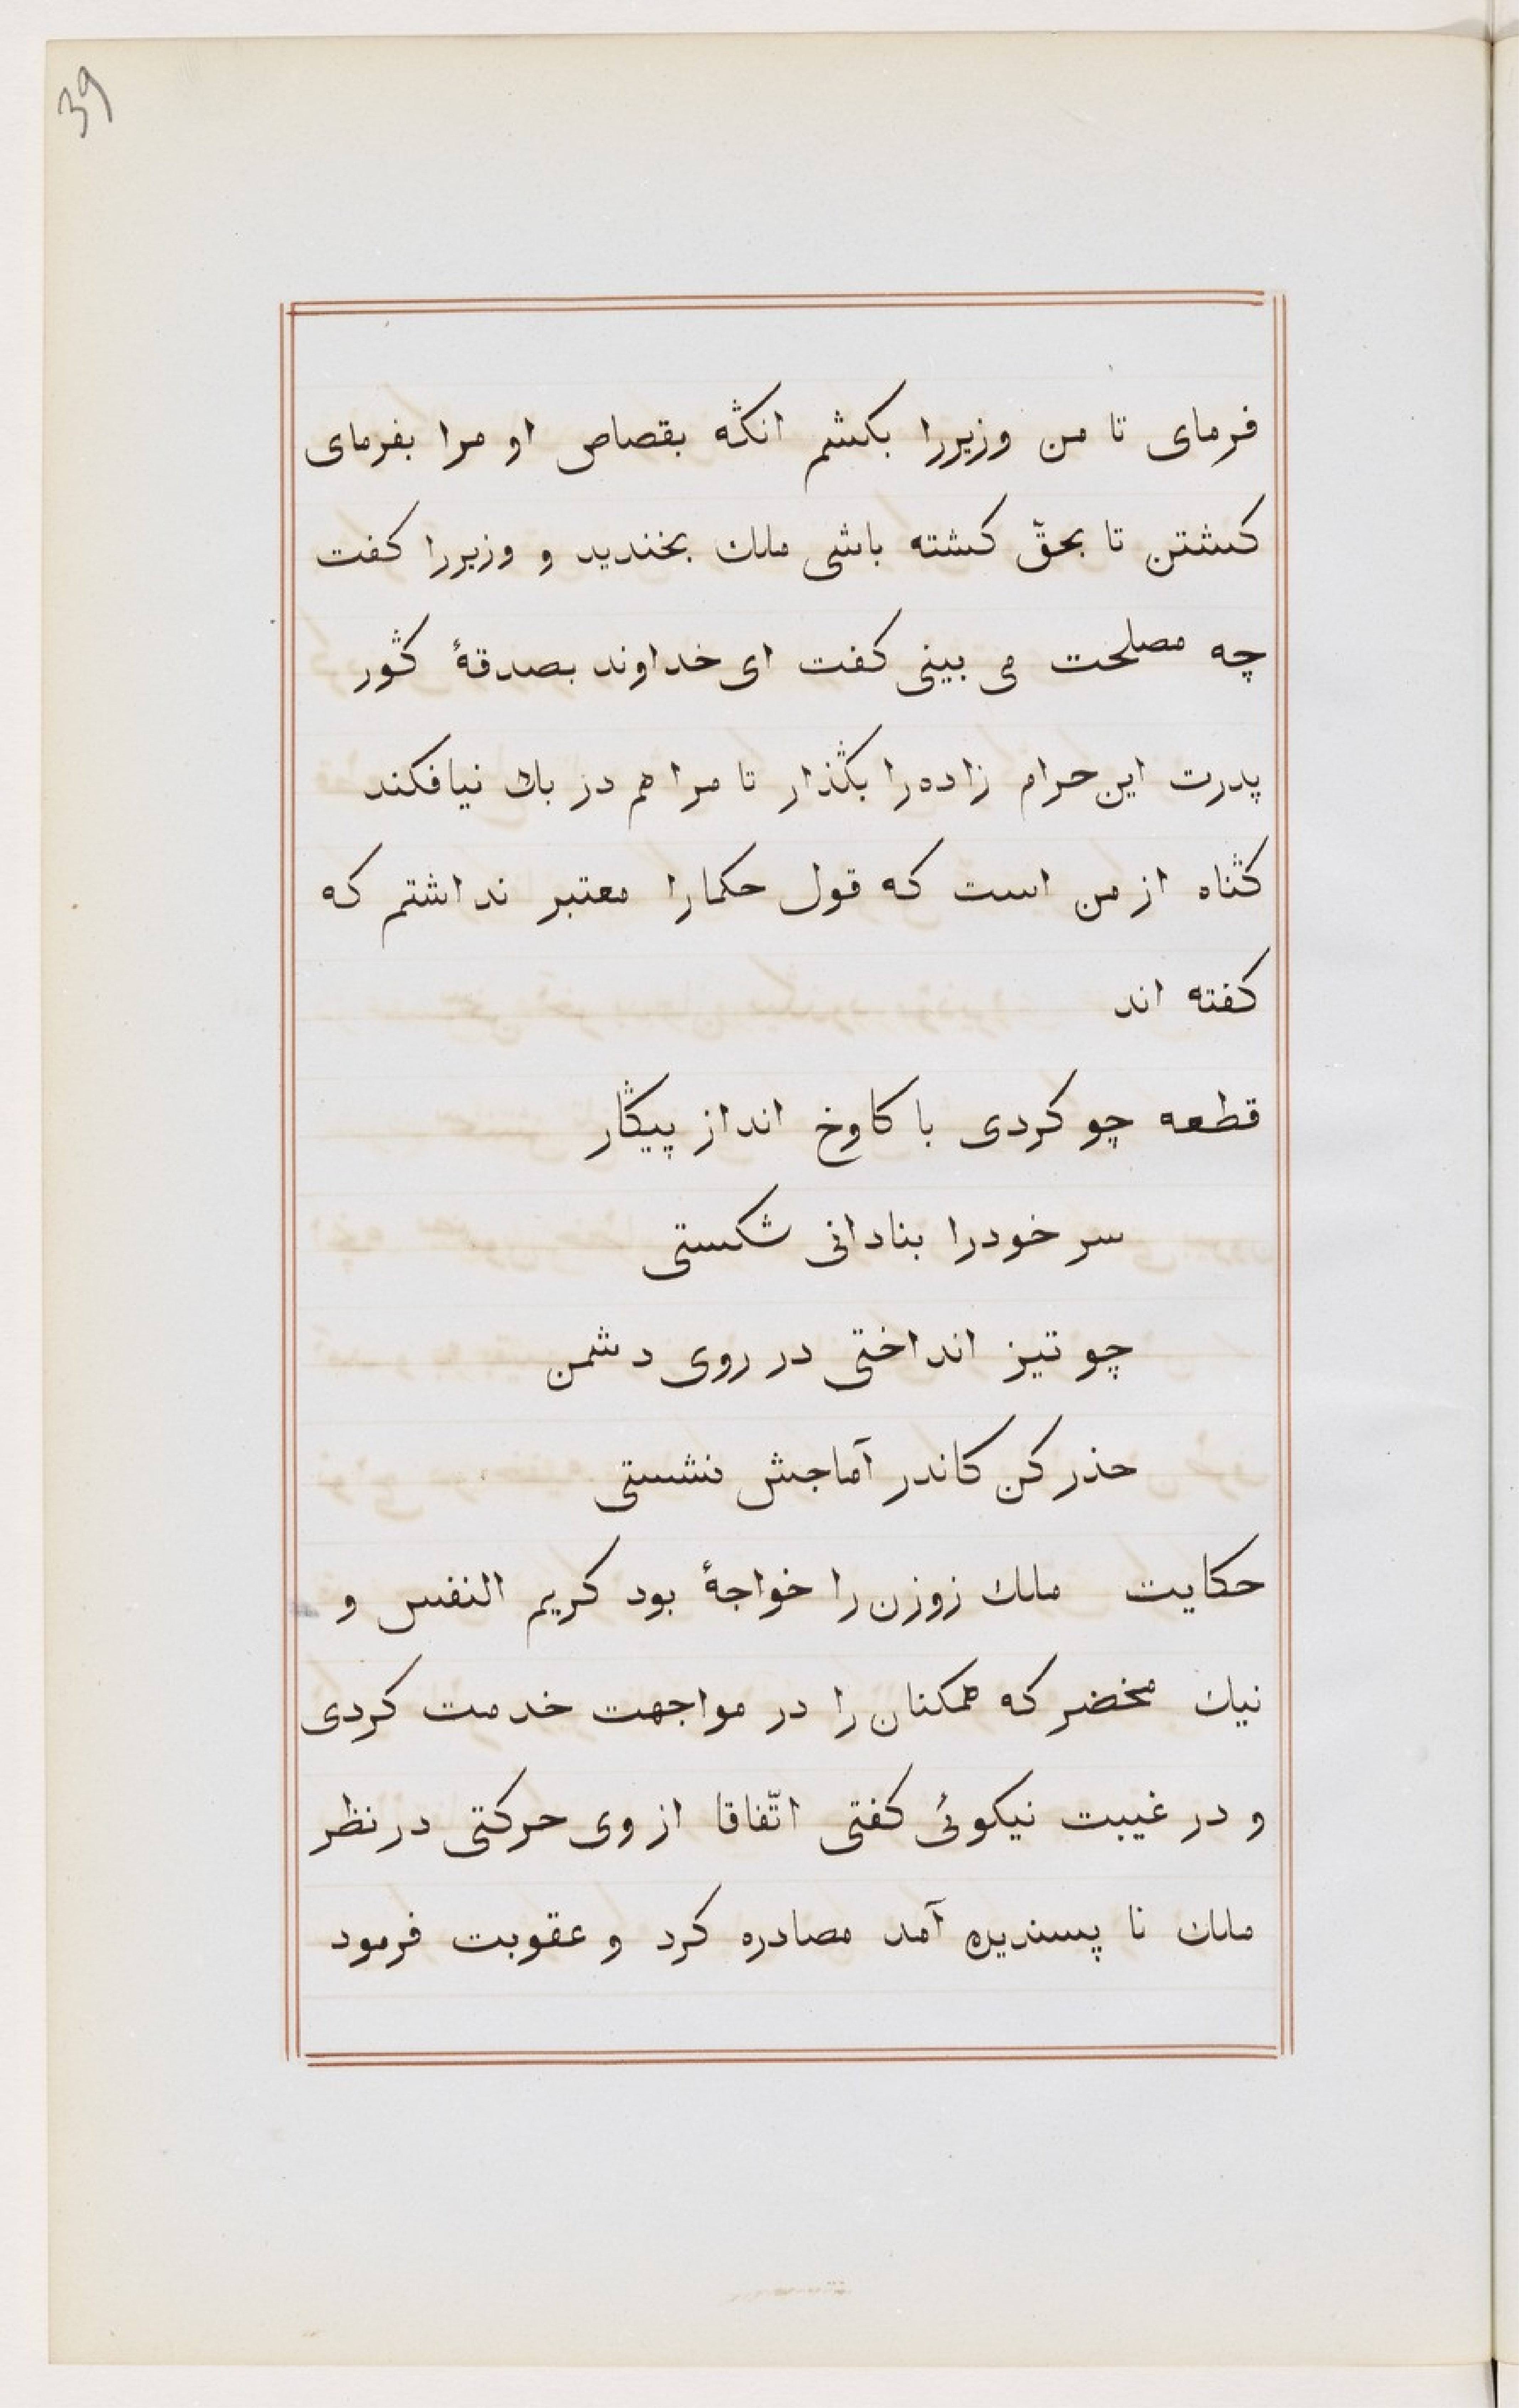 39
فرمای تا من وزیررا بکشم انݣه بقصاص او مرا بفرمای
کشتن تا بحقّ کشته باشی ملك بخندید و وزیررا کفت
چه مصلحت می بینی کفت ای خداوند بصدقهٔ ݣور
پدرت این حرام زاده را بݣذار تا مرا هم در باك نیافکند
ݣناه از من است که قول حکمارا معتبر نداشتم که
کفته اند
قطعه چو کردی با کاوخ انداز پیݣار
سر خودرا بنادانی شکستی
چو تیز انداختی در روی دشمن
حذر کن کاندر آماجش نشستی
حکایت ملك زوزن را خواجهٔ بود کریم النفس و
نیك مخضر که همکنان را در مواجهت خدمت کردی
و در غیبت نیکوئی کفتی اتّفاقا از وی حرکتی در نظر
ملك نا پسندیده آمد مصادره کرد و عقوبت فرمود